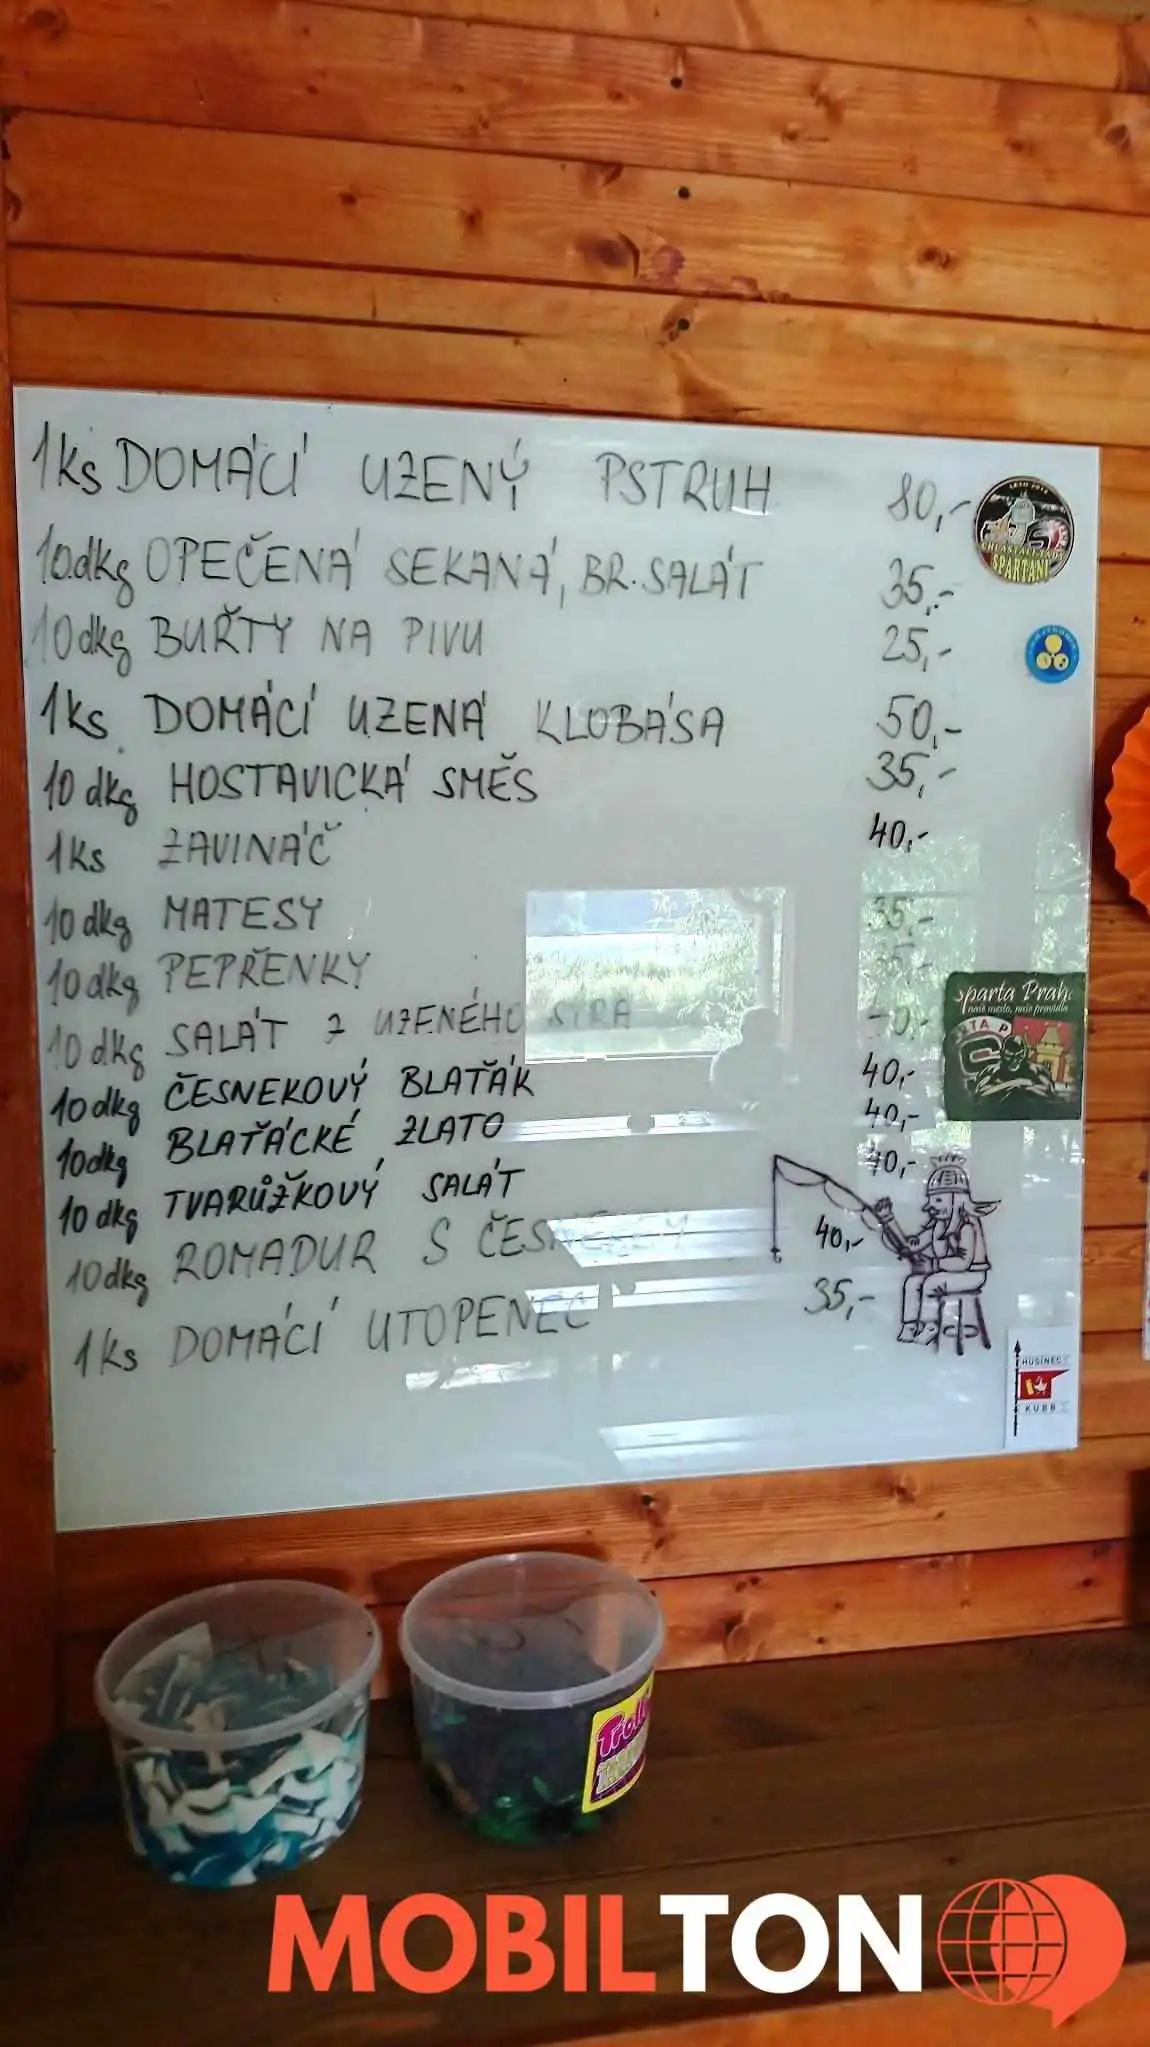 1ks DOMÁCÍ UZENÝ PSTRUH 80,-
10dkg OPEČENÁ SEKANÁ, BR. SALÁT 35,-
10dkg BUŘTY NA PIVU 25,-
1ks DOMÁCÍ UZENÁ KLOBÁSA 50,-
10 dkg HOSTAVICKÁ SMĚS 35,-
1ks ZAVINÁČ 40,-
10 dkg MATESY 35,-
10 dkg PEPŘENKY 35,-
10 dkg SALÁT Z UZENÉHO SÝRA
10dkg ČESNEKOVÝ BLAŤÁK 40,-
10dkg BLAŤÁCKÉ ZLATO 40,-
10 dkg TVARŮŽKOVÝ SALÁT 40,-
10dkg ROMADUR S ČESNEKEM 40,-
1ks DOMÁCÍ UTOPENEC 35,-
SPARTANI
Sparta Praha
naše město, naše pravidla
HUSINEC
KUBB
Trolli
MOBILTON